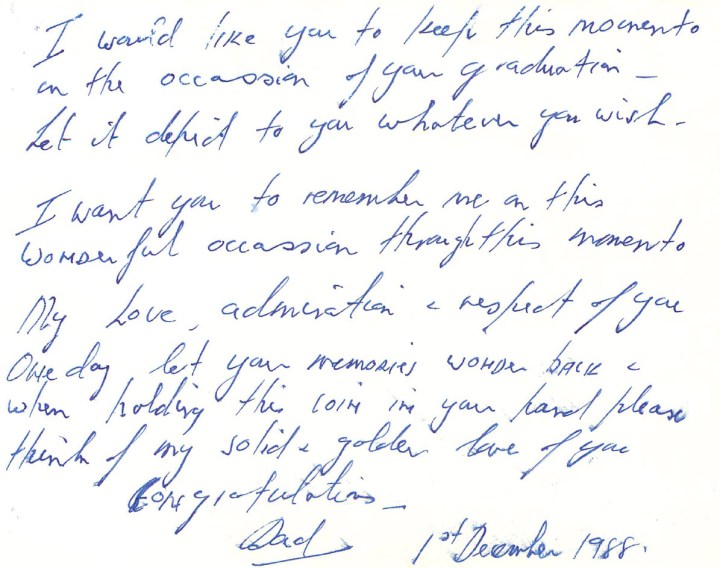 I would like you to keep this momento
on the occassion of your graduation —
Let it depict to you whatever you wish.
I want you to remember me on this
wonderful occassion through this momento
My Love, admiration & respect of you
One day let your memories wonder back &
when holding this coin in your hand please
think of my solid & golden love of you
Congratulations —
Dad 1st December 1988.